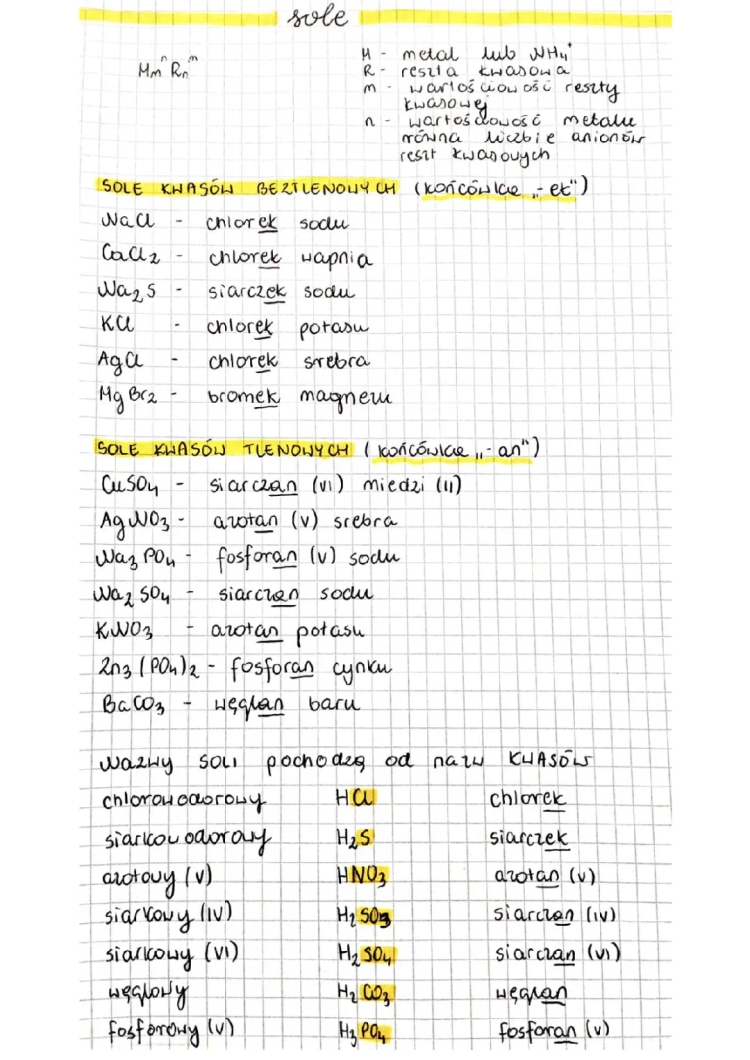 sole
Mₘⁿ Rₙᵐ
M - metal lub NH₄⁺
R - reszta kwasowa
m - wartościowość reszty
kwasowej
n - wartościowość metalu
równa liczbie anionów
reszt kwasowych
SOLE KWASÓW BEZTLENOWYCH (końcówka „-ek”)
NaCl - chlorek sodu
CaCl₂ - chlorek wapnia
Na₂S - siarczek sodu
KCl - chlorek potasu
AgCl - chlorek srebra
MgBr₂ - bromek magnezu
SOLE KWASÓW TLENOWYCH (końcówka „-an”)
CuSO₄ - siarczan (VI) miedzi (II)
AgNO₃ - azotan (V) srebra
Na₃PO₄ - fosforan (V) sodu
Na₂SO₄ - siarczan sodu
KNO₃ - azotan potasu
Zn₃(PO₄)₂ - fosforan cynku
BaCO₃ - węglan baru
NAZWY SOLI pochodzą od nazw KWASÓW
chlorowodorowy HCl chlorek
siarkowodorowy H₂S siarczek
azotowy (V) HNO₃ azotan (V)
siarkowy (IV) H₂SO₃ siarczan (IV)
siarkowy (VI) H₂SO₄ siarczan (VI)
węglowy H₂CO₃ węglan
fosforowy (V) H₃PO₄ fosforan (V)